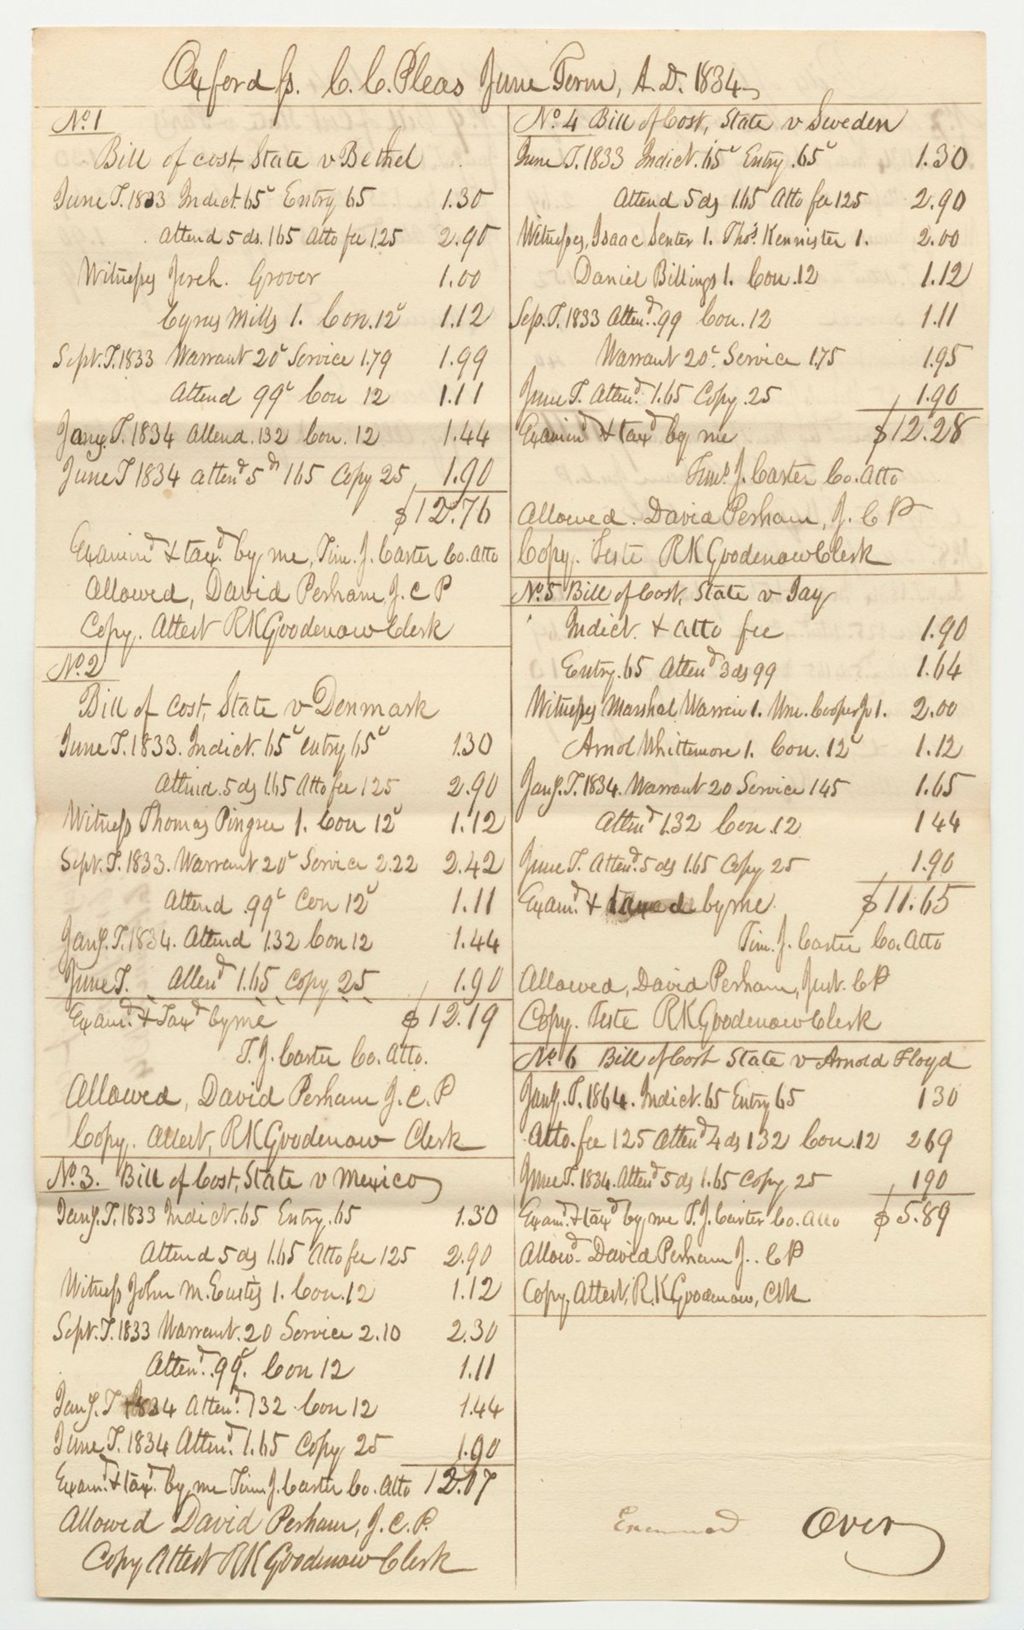 Oxford ss. C. C. Pleas June Term, A. D. 1834
No. 1
Bill of cost, State v Bethel
June T. 1833 Indict. 65c Entry 65 1.30
Attend 5 ds. 165 Atto fee 1.25 2.90
Witnesses Jerch. Grover 1.00
Cyrus Mills 1. Con. 12c 1.12
Sept. T. 1833 Warrant 20c Service 1.79 1.99
Attend 99c Con 12 1.11
Jany. T. 1834 Attend. 132 Con. 12 1.44
June T 1834 attend 5 ds 165 Copy 25 1.90
$12.76
Examind & taxd by me, Tim. J. Carter Co. Atto
Allowed, David Perham, J. C P
Copy. Attest R K Goodenow Clerk
No. 2
Bill of Cost, State v Denmark
June T. 1833. Indict. 65c entry 65c 1.30
Attend. 5 ds 1.65 Atto fee 1 25 2.90
Witness Thomas Pingree 1. Con 12c 1.12
Sept. T. 1833. Warrant 20c Service 2.22 2.42
Attend .99c Con 12c 1.11
Jany. T. 1834. Attend 1.32 Con 12 1.44
June T. Attend 1.65 Copy 25 1.90
Examd. & Taxd by me $12.19
T. J. Carter Co. Atto.
Allowed, David Perham J. C. P
Copy. Attest, R K Goodenow Clerk
No. 3. Bill of Cost, State v Mexico
Jany. T. 1833 Indict. 65 Entry. 65 1.30
Attend 5 ds 1.65 Atto fee 125 2.90
Witness John M. Eustis 1. Con. 12 1.12
Sept. T. 1833 Warrant. 20 Service 2.10 2.30
Attend. 99c. Con 12 1.11
Jany. T 1834 Attend. 132 Con 12 1.44
June T. 1834 Attend. 1.65 Copy 25 1.90
Examd. & taxd. by me Tim. J. Carter Co. Atto 12.07
Allowed David Perham, J. C. P.
Copy Attest R K Goodenow Clerk
No. 4 Bill of Cost, State v Sweden
June T. 1833 Indict. 65c Entry .65c 1.30
Attend 5 ds 1.65 Atto fee 125 2.90
Witnesses, Isaac Senter 1. Thos. Kennister 1. 2.00
Daniel Billings 1. Con. 12 1.12
Sep. T. 1833 Attend. .99 Con. 12 1.11
Warrant 20c. Service 1.75 1.95
June T. Attend. 1.65 Copy .25 1.90
Examind & taxd by me $12.28
Timo. J. Carter Co. Atto
Allowed. David Perham, J. C P
Copy. Teste R K Goodenow Clerk
No. 5 Bill of Cost, State v Jay
Indict. & atto fee 1.90
Entry. 65 Attend 3 ds 99 1.64
Witnesses Marshal Warren 1. Wm. Cooper Jr 1. 2.00
Arnol Whittemore 1. Con. 12c 1.12
Jany. T. 1834. Warrant 20 Service 145 1.65
Attend 1.32 Con .12 1 44
June T. Attend. 5 ds 1.65 Copy 25 1.90
Examd. & taxed by me $11.65
Tim. J. Carter Co. Atto
Allowed, David Perham, Just. C P
Copy. Teste R K Goodenow Clerk
No. 6 Bill of Cost State v Arnold Floyd
Jany. T. 1864. Indict. 65 Entry 65 1 30
Atto. fee 125 Attend 4 ds 132 Con. 12 2 69
June T. 1834. Attend 5 ds 1.65 Copy 25 1 90
Examd. & taxd by me T. J. Carter Co. Atto $5.89
Allowd. David Perham J. C P
Copy, Attest, R. K. Goodenow, Clk
Over